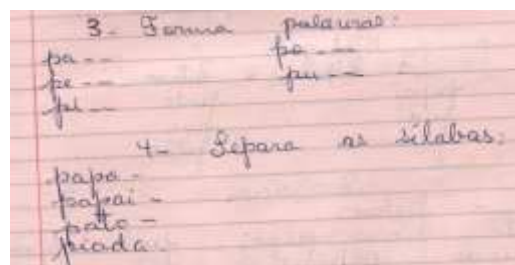 3- Forma palavras:
pa -- po ---
pe -- pu --
pi --
4- Separa as silabas:
papa -
papai -
pato -
piada -